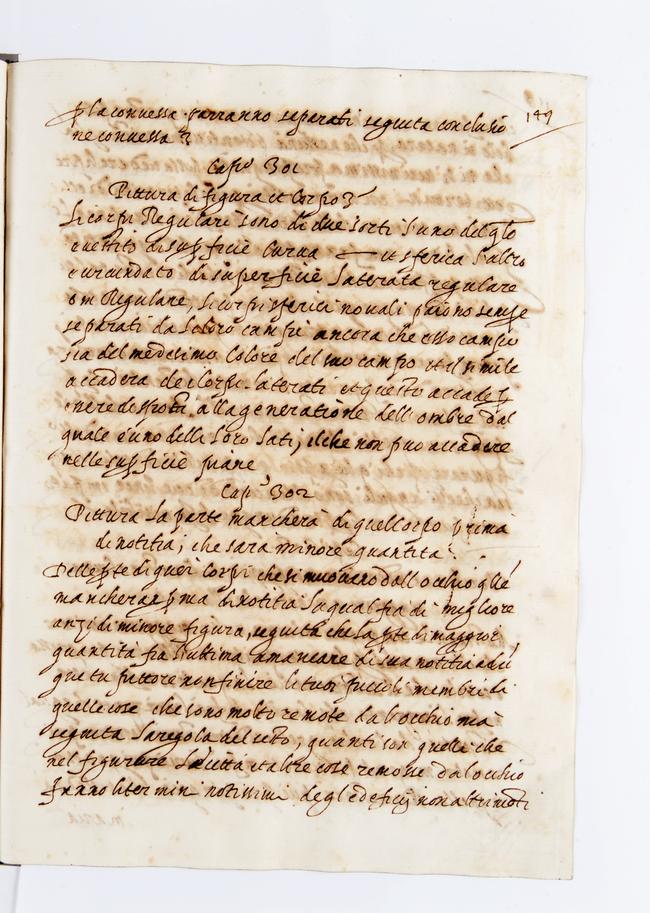 149
p la conuessa parranno separati seguita conclusio
ne conuessa
Cap.º 301
Pittura di figura et Corpo
Li corpi Regulari sono di due sorti l'uno del qlo
e uestito di supficie curua sferica l'altro
e circundato di superficie laterata regulare
o in Regulare, li corpi sferici paiono sempre
separati da loro campi ancora che esso campo
sia del medesimo colore del suo campo et il simile
accadera de i corpi laterati et questo accade p
essere disposti alla generatione dell ombre dal
quale e uno delli loro lati, il che non puo accadere
nelle supficie piane
Cap.º 302
Pittura la parte manchera di quel corpo prima
di notitia, che sara minore quantita.
Delle pte di quei Corpi che si muouano dall occhio
manchera pma di notitia la qual fia di migliore
anzi di minore figura, seguita che la pte di maggior
quantita fia l'ultima a mancare di sua notitia
que tu pittore non finire li tuoi piccoli membri di
quelle cose che sono molto remote dal occhio ma
seguita la regola del sesto, quanti son quelli che
nel figurare la citta et altre cose remosse dal ochio
fanno li termini notissimi degl edeficij non altrimoti